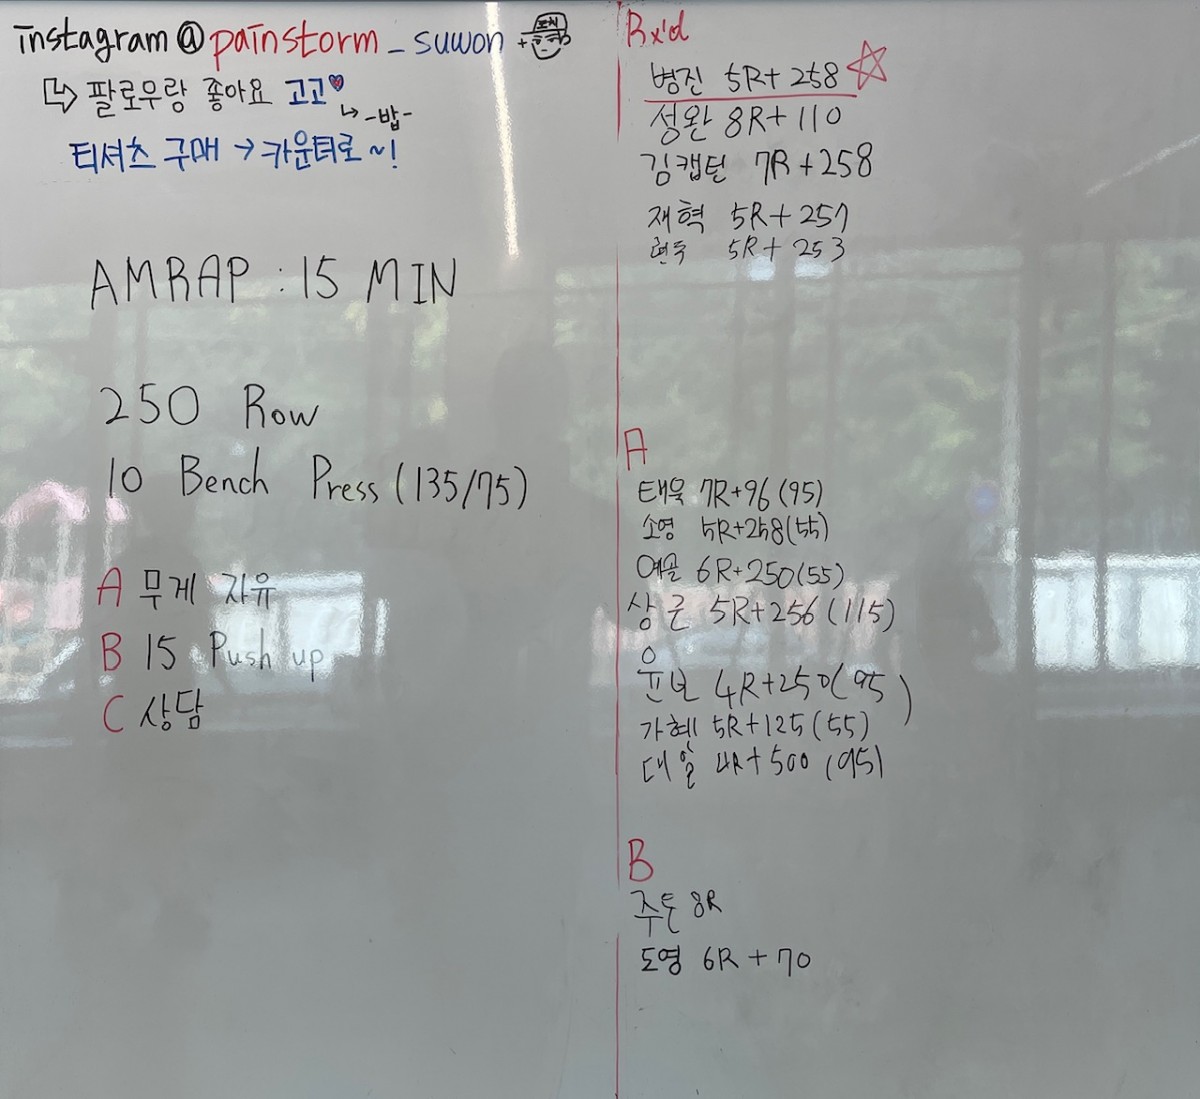 instagram@painstorm_suwon
팔로우랑 좋아요 고고
-밥-
티셔츠 구매 → 카운터로~!
AMRAP : 15 MIN
250 Row
10 Bench Press (135/75)
A 무게 자유
B 15 Push up
C 상담
Rx'd
병진 5R+258
성완 8R+110
김캡틴 7R+258
재혁 5R+257
5R+253
A
태욱 7R+96(95)
소영 5R+258(55)
예골 6R+250(55)
상근 5R+256(115)
윤보 4R+250(95)
가혜 5R+125(55)
대일 4R+500(95)
B
주돈 8R
도영 6R+70